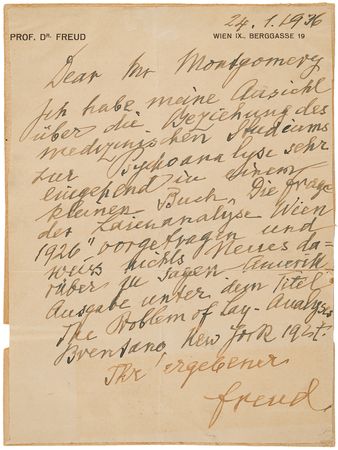 24.1.1936
PROF. DR. FREUD
WIEN IX., BERGGASSE 19
Dear Mr Montgomery
Ich habe meine Ansicht
über die Beziehung des
medizinischen Studiums
zur Psychoanalyse sehr
eingehend in einem
kleinen Buch „Die Frage
der Laienanalyse Wien
1926“ vorgetragen und
weiss nichts Neues da-
rüber zu sagen. Amerik
Ausgabe unter dem Titel:
The Problem of Lay-Analyses
Brentano New York 1927.
Ihr ergebener
Freud